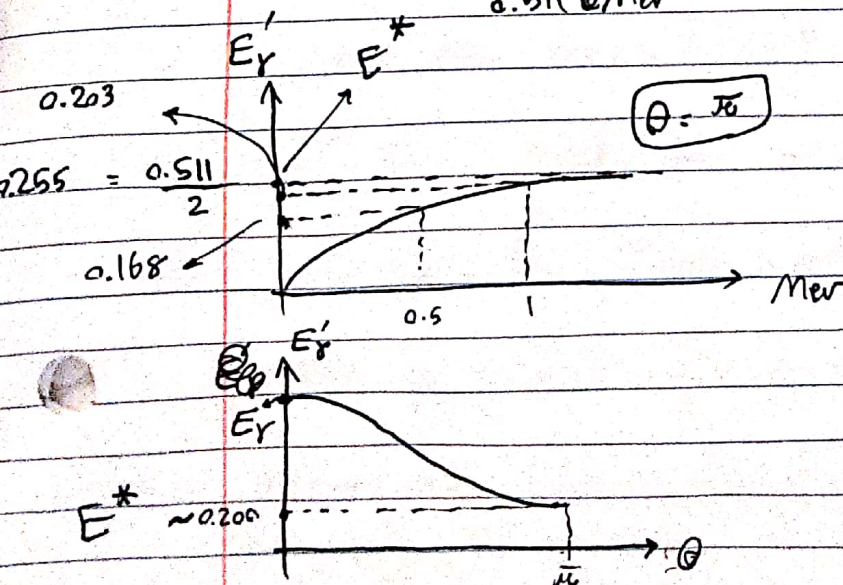 E'γ
E*
0.203
θ = π
.255 = 0.511/2
0.168
0.5
1
Mev
E'γ
Eγ
E* ~0.200
θ
π